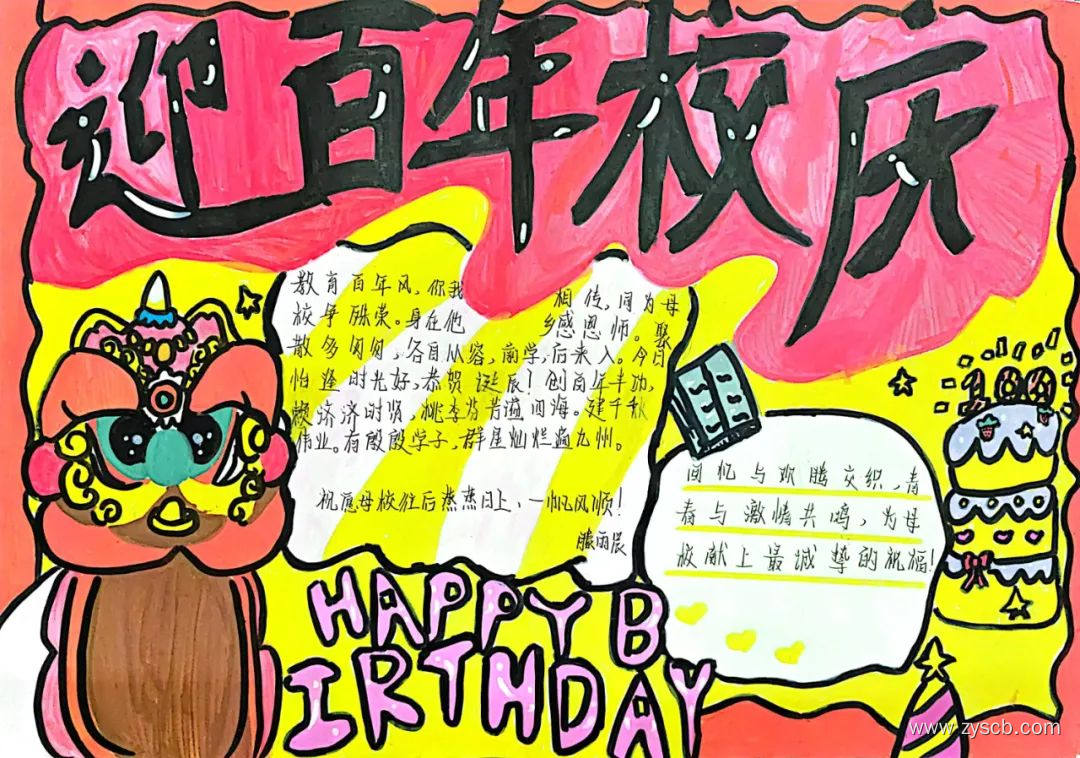 迎百年校庆
教育百年风，你我 相传，同为母
校争殊荣。身在他 乡感恩师。聚
散多匆匆，各自从容，南学，后来人。今日
恰逢时光好，恭贺诞辰！创百年丰功，
赖济济时贤，桃李芬芳溢四海。建千秋
伟业。有殷殷学子，群星灿烂遍九州。
祝愿母校往后蒸蒸日上，一帆风顺！
滕雨辰
100
回忆与欢腾交织，青
春与激情共鸣，为母
校献上最诚挚的祝福！
HAPPY B
IRTHDAY
www.zyscb.com